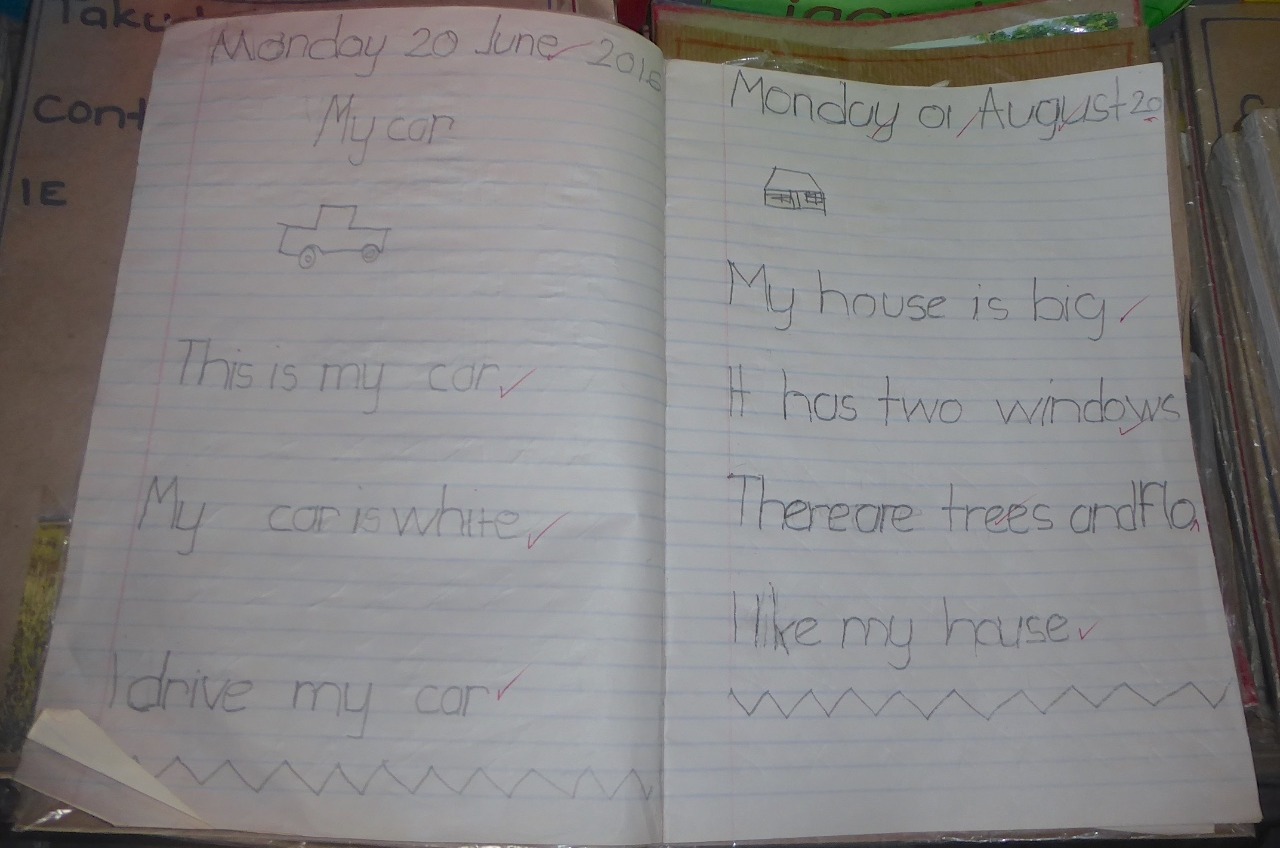 Monday 20 June 2016
My car
This is my car
My car is white
I drive my car
Monday 01 August 20
My house is big
It has two windows
There are trees and flo
I like my house
Cont
1E